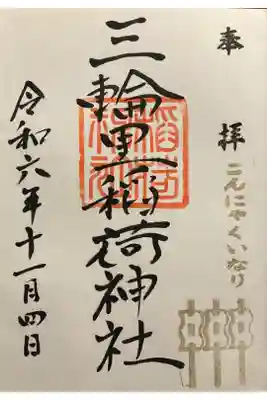 奉拝
こんにゃくいなり
三輪里稲荷神社
令和六年十一月四日